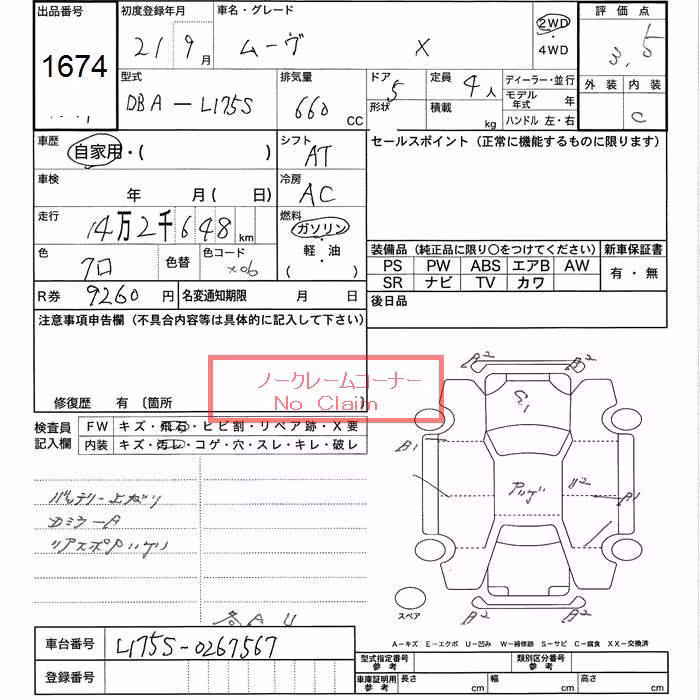 出品番号 初度登録年月 車名・グレード 評価点
1674 21 9月 ムーヴ X 2WD・4WD 3.5
型式 排気量 ドア 5 定員 4人 ディーラー・並行 外装 内装
DBA-L175S 660 CC 形状 積載 kg モデル年式 年 C
ハンドル 左・右
車歴 自家用・( ) シフト AT セールスポイント (正常に機能するものに限ります)
車検 年 月( 日) 冷房 AC
走行 14万2千648km 燃料 ガソリン・軽・油 ( )
色 クロ 色替 色コード X06 装備品 (純正品に限り○をつけてください) 新車保証書
PS PW ABS エアB AW 有・無
SR ナビ TV カワ
R券 9260円 名変通知期限 月 日 後日品
注意事項申告欄 (不具合内容等は具体的に記入して下さい)
ノークレームコーナー
No Claim
修復歴 有 (箇所
検査員記入欄 FW キズ・飛石・ヒビ割・リペア跡・X要
内装 キズ・汚レ・コゲ・穴・スレ・キレ・破レ
バッテリー上がり
DミラーA
A2 A2
G1
B1
U2
A1
A2 A2
スペア
A U
A-キズ E-エクボ U-凹み W-補修跡 S-サビ C-腐食 XX-交換済
車台番号 L175S-0267567
登録番号
型式指定番号 参考 類別区分番号 参考
車庫証明用 参考 長さ cm 幅 cm 高さ cm